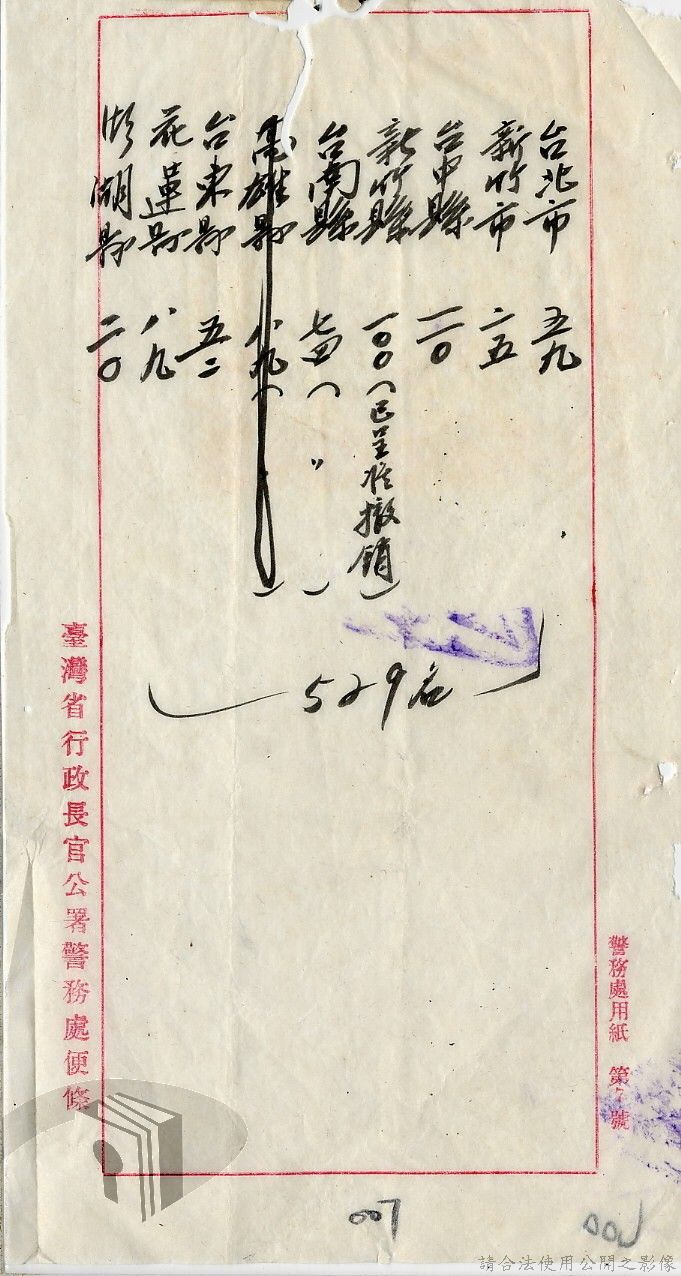 警務處用紙 第7號
台北市 五九
新竹市 二五
台中縣 一一〇
新竹縣 一〇〇(已呈准撤銷)
台南縣 七四( 〃 )
高雄縣 八九( )
台東縣 五二
花蓮縣 八九
澎湖縣 二〇
529名
臺灣省行政長官公署警務處便條
007
請合法使用公開之影像